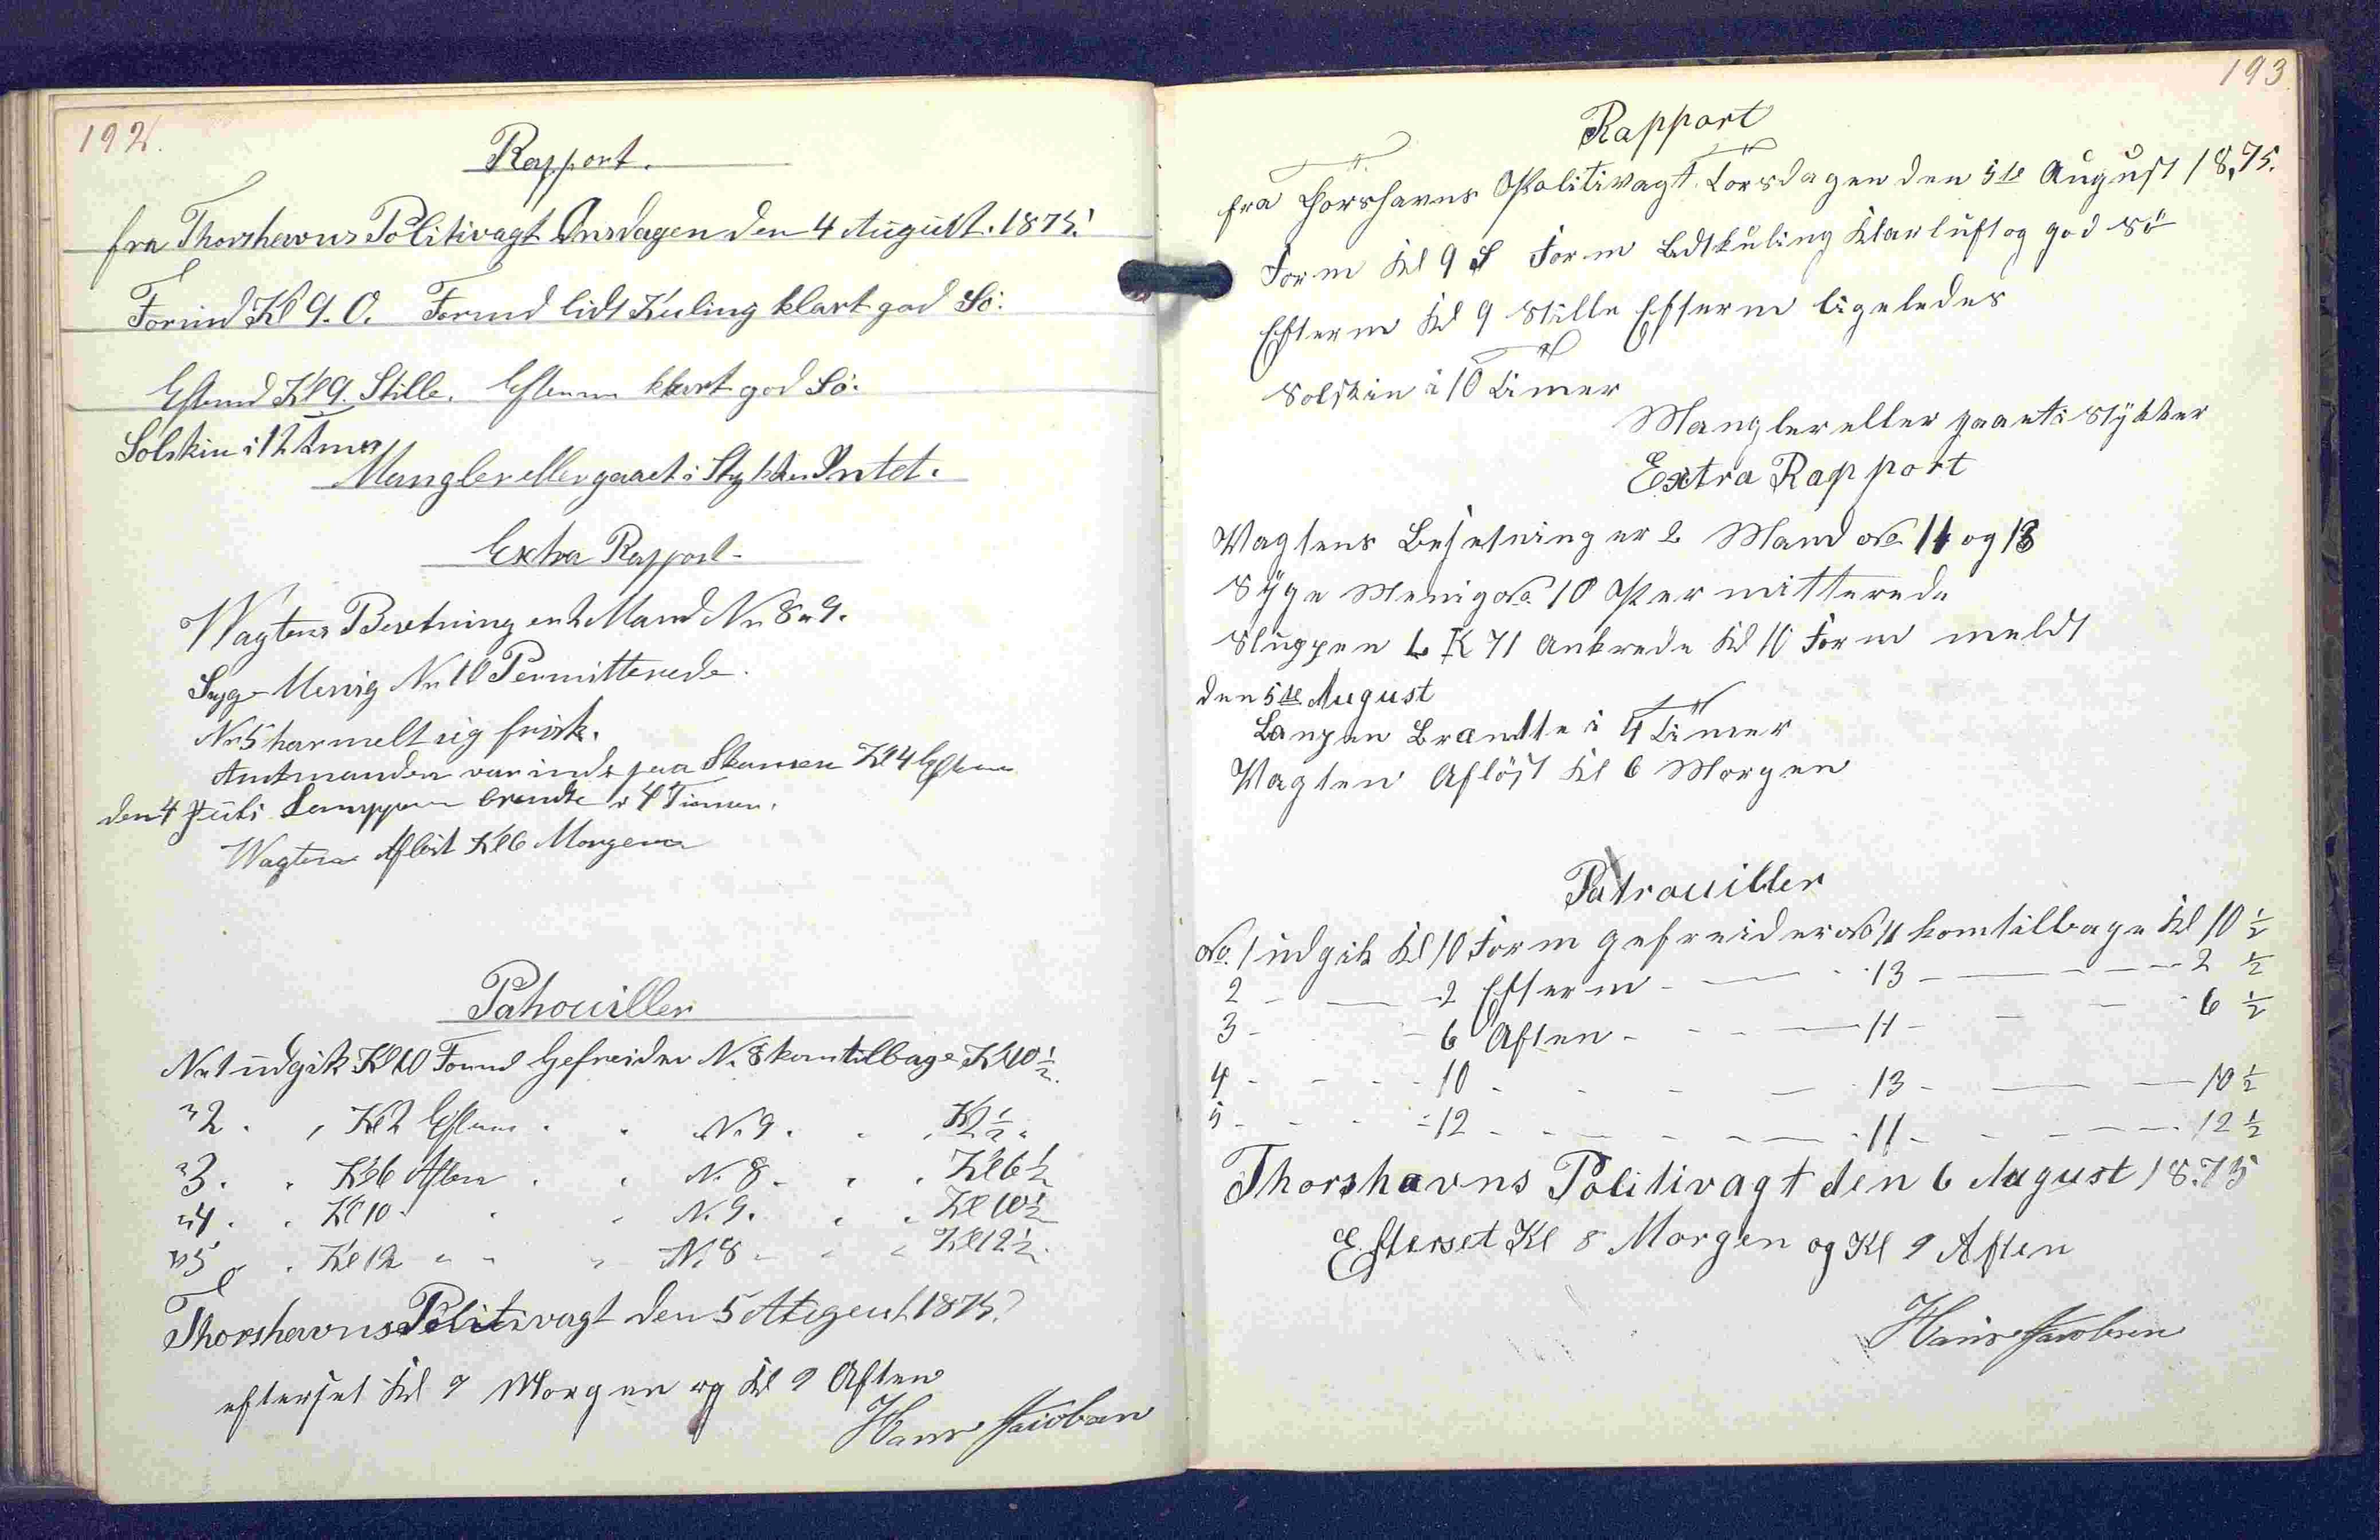 192.
Rapport.
fra Thorshavns Politivagt Onsdagen den 4 August. 1875.
Formd Kl 9. O. Formd lidt Kuling klart god Sö.
Eftmd Kl 9. Stille. Efterm klart god Sö.
Solskin i 12 Timer
Mangler eller gaaet i Stykker Intet.
Extra Rapport
Wagtens Besetning er 2 Mand No 8 & 9.
Syge Menig No 10 Permitterede.
No 5 har melt sig frisk.
Amtmanden var inde paa Skansen Kl 4 Efterm
den 4 Juli Lamppen brendte i 4 Timer.
Wagten Aflöst Kl 6 Morgen
Patrouiller
No 1 udgik Kl 10 Formd Gefreider No 8 kom tilbage Kl 10 1/2.
" 2 . , Kl 2 Efterm . . No 9 . . , Kl 2 1/2 .
" 3 . . Kl 6 Aften . . No 8 . . . Kl 6 1/2
" 4 . . Kl 10 . . . No 9 . . . Kl 10 1/2
" 5 . . Kl 12 " " " No 8 " " " Kl 12 1/2.
Thorshavns Politivagt den 5 August 1875.
efterset Kl 9 Morgen og Kl 9 Aften
Hans Jacobsen
193
Rapport
fra Thorshavns Politivagt Torsdagen den 5te August 1875.
Form Kl 9 S Form Lidt kuling Klar luft og god Sö
Efterm Kl 9 Stille Efterm ligeledes
Solskin i 10 Timer
Mangler eller gaaet i Stykker
Extra Rapport
Vagtens Besetning er 2 Mand No. 11 og 13
Syge Menig No. 10 Permitterede
Sluppen L K 71 Ankrede Kl 10 Form meldt
den 5te August
Lampen Brændte i 4 Timer
Vagten Aflöst Kl 6 Morgen
Patrouiller
No. 1 udgik Kl 10 Form gefreider No 11 kom tilbage Kl 10 1/2
2 - — 2 Efterm - — - 13 - — - - - 2 1/2
3 - - 6 Aften - - - — 11 - - - - 6 1/2
4 - - - - 10 - - - — 13 - — — 10 1/2
5 - - - - 12 - - - - — 11 - - - - - 12 1/2
Thorshavns Politivagt den 6 August 1875
Efterset Kl 8 Morgen og Kl 9 Aften
Hans Jacobsen